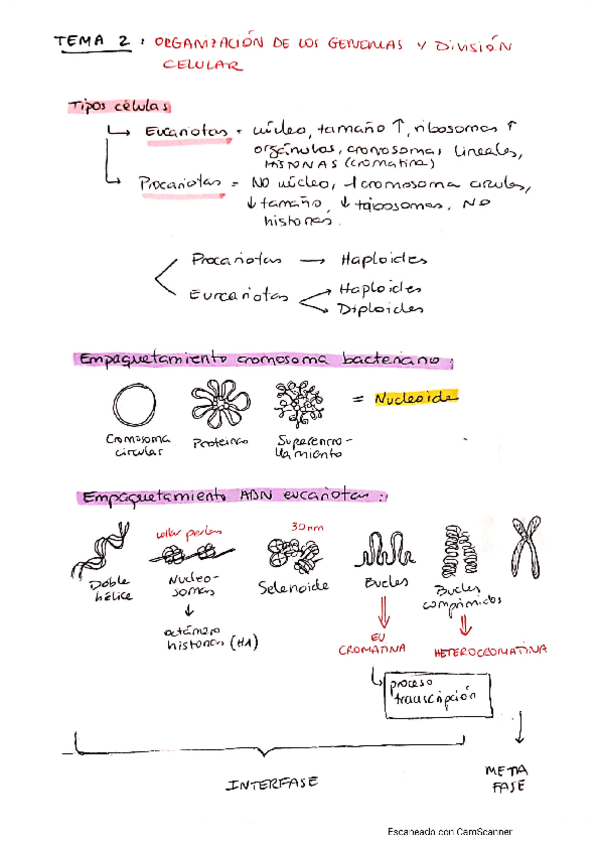 TEMA 2 : ORGANIZACIÓN DE LOS GENOMAS Y DIVISIÓN
CELULAR
Tipos células
Eucariotas = núcleo, tamaño ↑, ribosomas ↑
orgánulos, cromosomas lineales,
HISTONAS (cromatina)
Procariotas = NO núcleo, 1 cromosoma circular,
↓ tamaño, ↓ ribosomas, NO
histonas.
Procariotas → Haploides
Eurcariotas → Haploides
→ Diploides
Empaquetamiento cromosoma bacteriano:
= Nucleoide
Cromosoma
circular
Proteínas
Superenrro-
llamiento
Empaquetamiento ADN eucariotas:
collar perlas
30nm
Doble
hélice
Nucleo-
somas
↓
octámero
histonas (H1)
Selenoide
Bucles
Bucles
comprimidos
EU
CROMATINA
HETEROCROMATINA
proceso
transcripción
INTERFASE
META
FASE
Escaneado con CamScanner